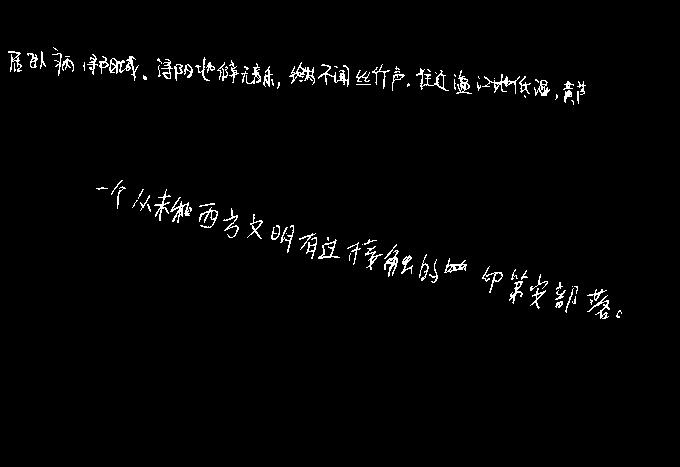 居卧病浔阳城。浔阳地僻无音乐,终岁不闻丝竹声。住近湓江地低湿,黄芦
一个从未和西方文明有过接触的印第安部落。